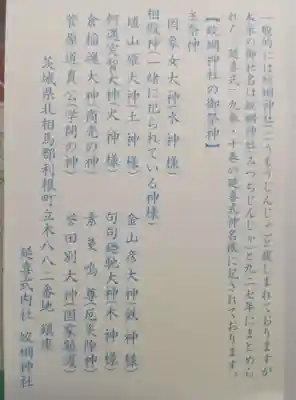 一般的には蛟蝄神社(こうもうじんじゃ)と親しまれておりますが
本来の御社名は蛟蝄神社(みつちじんじゃ)と九二七年にまとめら
れた延喜式 九巻・十巻の延喜式神名帳に記されております。
【蛟蝄神社の御祭神】
主祭神
罔象女大神(水神様)
相殿神(一緒に祀られている神様)
埴山姫大神(土神様) 金山彦大神(鉄神様)
軻遇突智大神(火神様) 句句廼馳大神(木神様)
倉稲魂大神(商売の神) 素戔嗚尊(厄災除神)
菅原道真公(学問の神) 誉田別大神(国家鎮護)
茨城県北相馬郡利根町立木八八二番地 鎮座
延喜式内社 蛟蝄神社